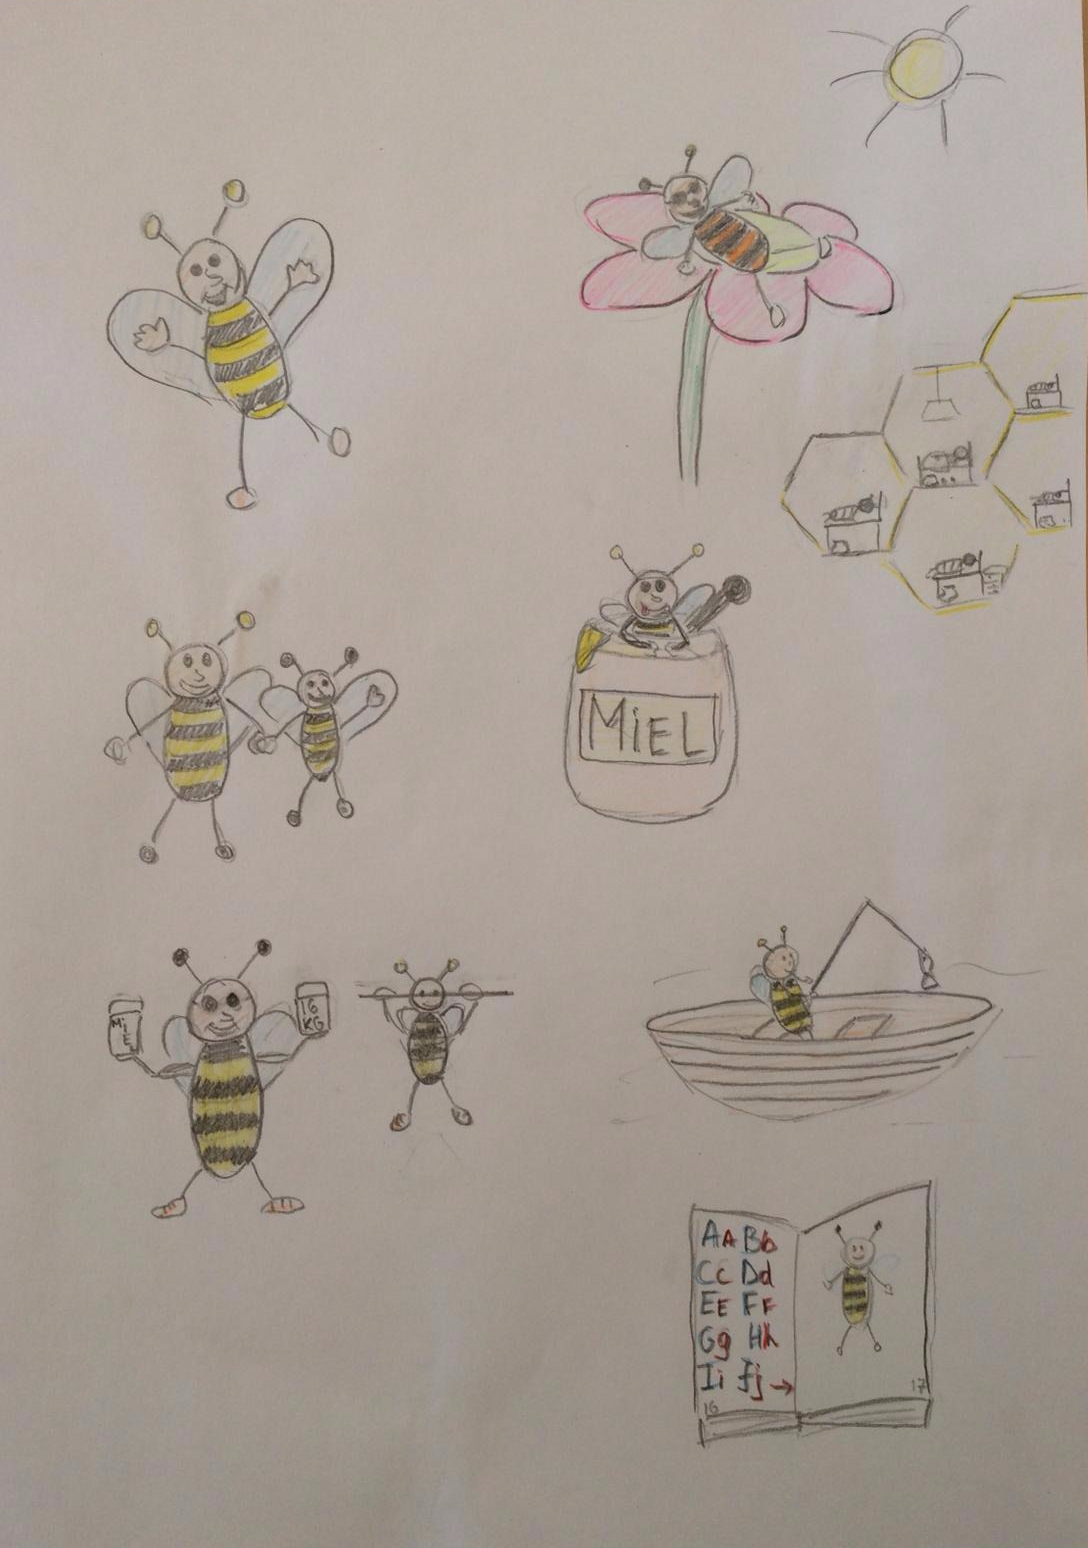 MiEL
MiEL
16
KG
AA Bb
Cc Dd
EE FF
Gg Hh
Ii Jj →
16
17